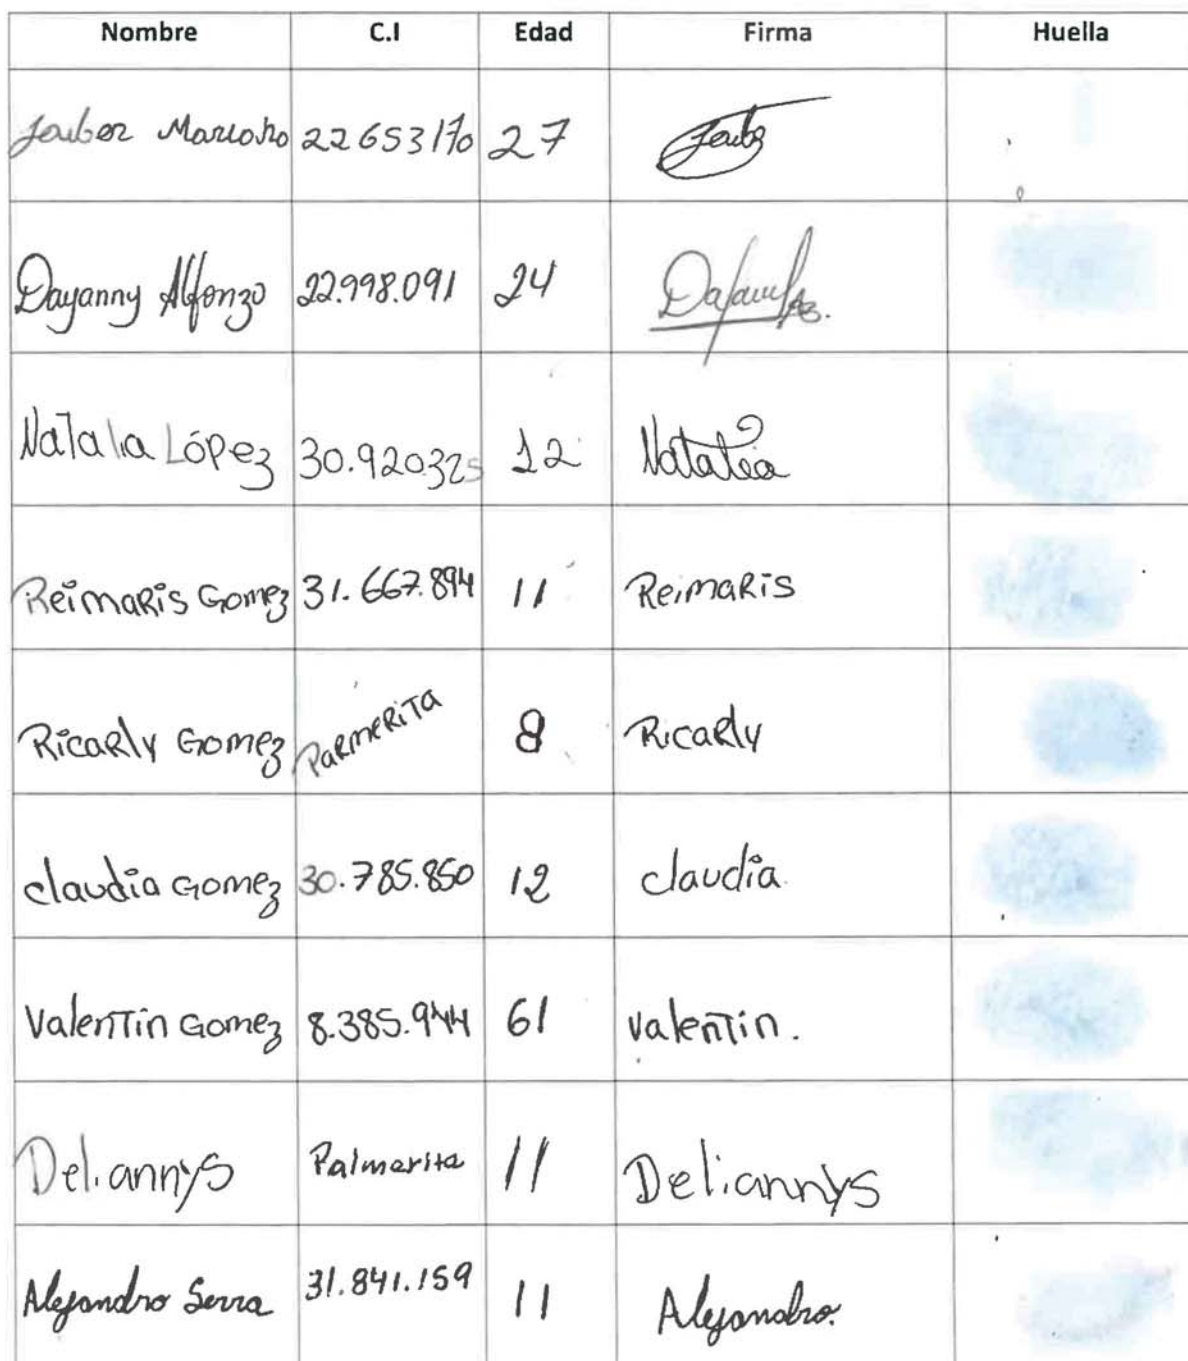 Nombre C.I Edad Firma Huella
22653170 27
Dayanny Alfonzo 22.998.091 24
Natalia López 30.920325 12 Natalia
Reimaris Gomez 31.667.894 11 Reimaris
Ricarly Gomez Parmerita 8 Ricarly
claudia Gomez 30.785.850 12 claudia.
Valentin Gomez 8.385.944 61 valentin.
Deliannys Palmarita 11 Deliannys
Alejandro Serra 31.841.159 11 Alejandro.